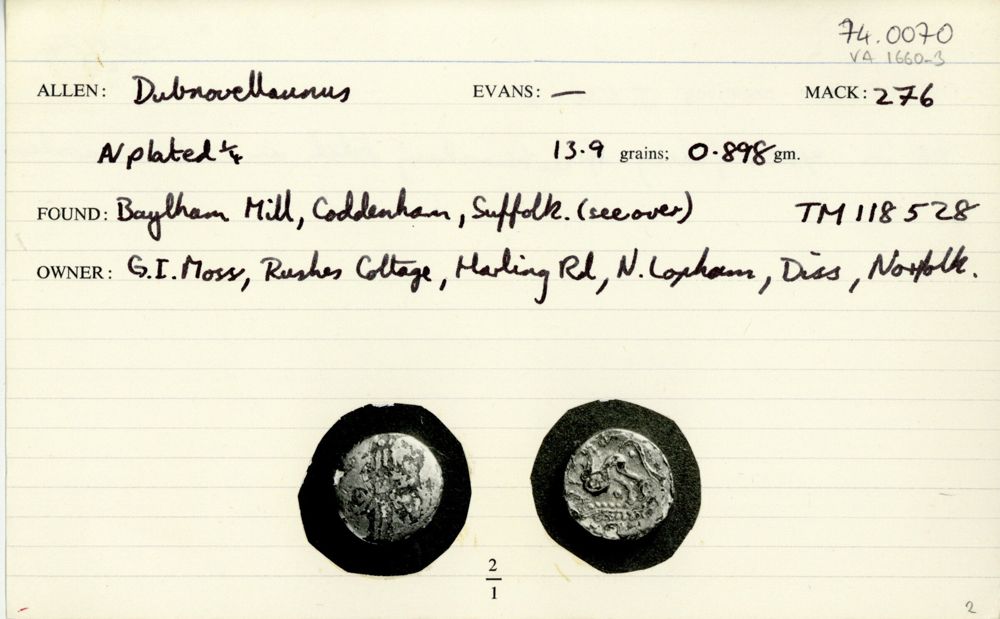 74.0070
VA 1660-3
ALLEN: Dubnovellaunus EVANS: — MACK: 276
AV plated ¼ 13.9 grains; 0.898 gm.
FOUND: Baylham Mill, Coddenham, Suffolk. (see over) TM 118 528
OWNER: G.I. Moss, Rushes Cottage, Harling Rd, N. Lopham, Diss, Norfolk.
2
1
2